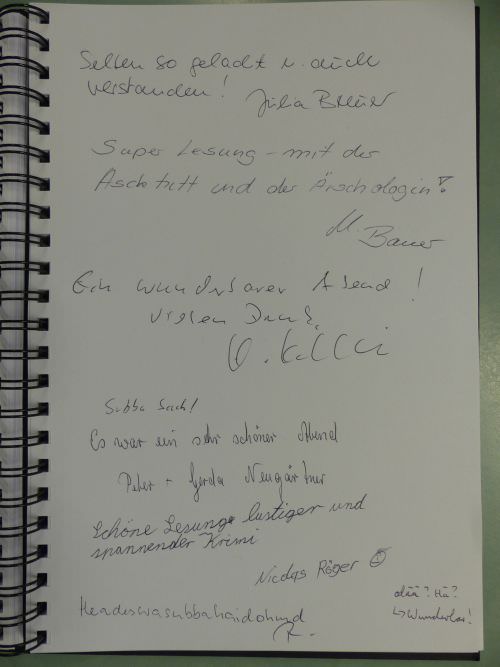 Selten so gelacht u. auch
verstanden! Julia Breuer
Super Lesung – mit der
und der Ärschologin!
M. Bauer
Ein wunderbarer Abend!
Vielen Dank,
Subba Sach!
Es war ein sehr schöner Abend
Peter + Gerda Neugärtner
Schöne Lesung, lustiger und
spannender Krimi
Nicolas Röger
Hä?
↳ Wunderbar!